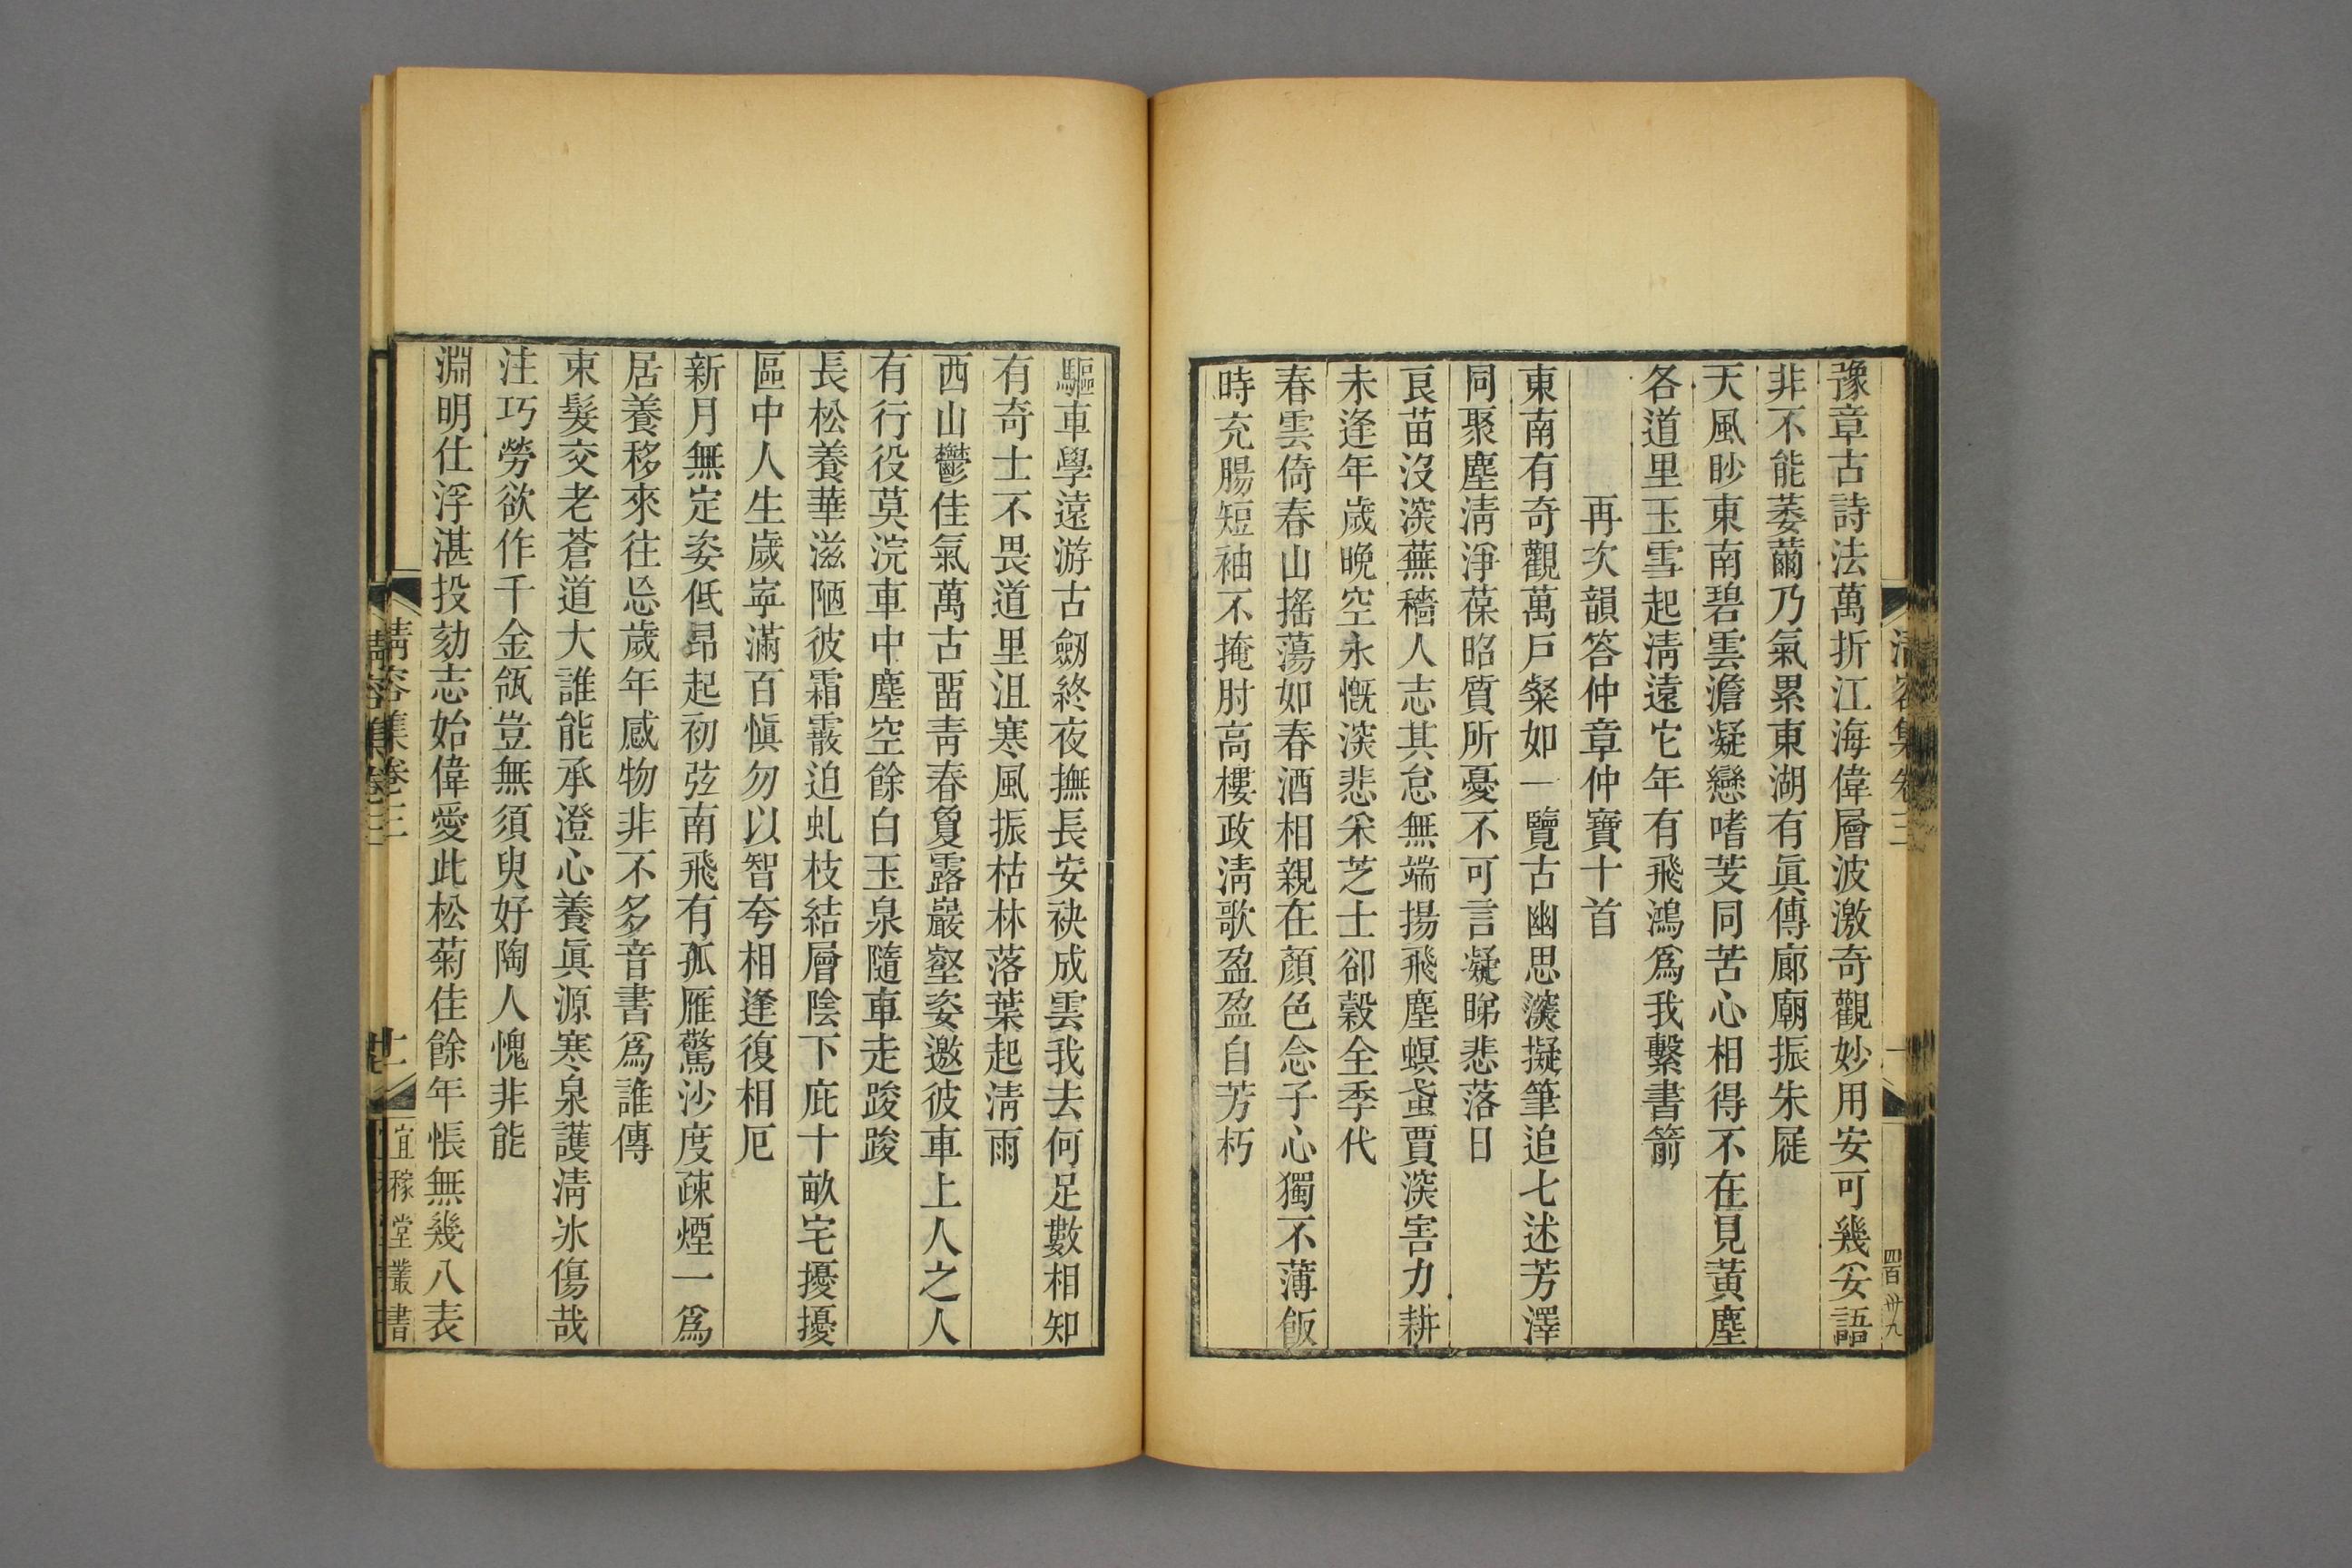 豫章古詩法萬折江海偉層波激奇觀妙用安可幾妥語
非不能萎薾乃氣累東湖有眞傳廊廟振朱屣
天風眇東南碧雲澹凝戀嗜芰同苦心相得不在見黃塵
各道里玉雪起淸遠它年有飛鴻爲我繫書箭
再次韻答仲章仲寶十首
東南有奇觀萬戶粲如一覽古幽思濚擬筆追七述芳澤
同聚塵淸淨葆昭質所憂不可言凝睇悲落日
良苗沒深蕪穡人志其怠無端揚飛塵螟蟊賈深害力耕
未逢年歲晚空永慨深悲采芝士卻穀全季代
春雲倚春山搖蕩如春酒相親在顏色念子心獨不薄飯
時充腸短袖不掩肘高樓政淸歌盈盈自芳朽
淸容集卷三
四百卅九
驅車學遠游古劒終夜撫長安袂成雲我去何足數相知
有奇士不畏道里沮寒風振枯林落葉起淸雨
西山鬱佳氣萬古畱靑春夐露巖壑姿邀彼車上人之人
有行役莫浣車中塵空餘白玉泉隨車走踆踆
長松養華滋陋彼霜霰迫虬枝結層陰下庇十畝宅擾擾
區中人生歲寧滿百愼勿以智夸相逢復相厄
新月無定姿低昂起初弦南飛有孤雁驚沙度疎煙一爲
居養移來往忘歲年感物非不多音書爲誰傳
束髮交老蒼道大誰能承澄心養眞源寒泉護淸冰傷哉
注巧勞欲作千金瓴豈無須臾好陶人愧非能
淵明仕浮湛投劾志始偉愛此松菊佳餘年悵無幾八表
淸容集卷三
宜稼堂叢書